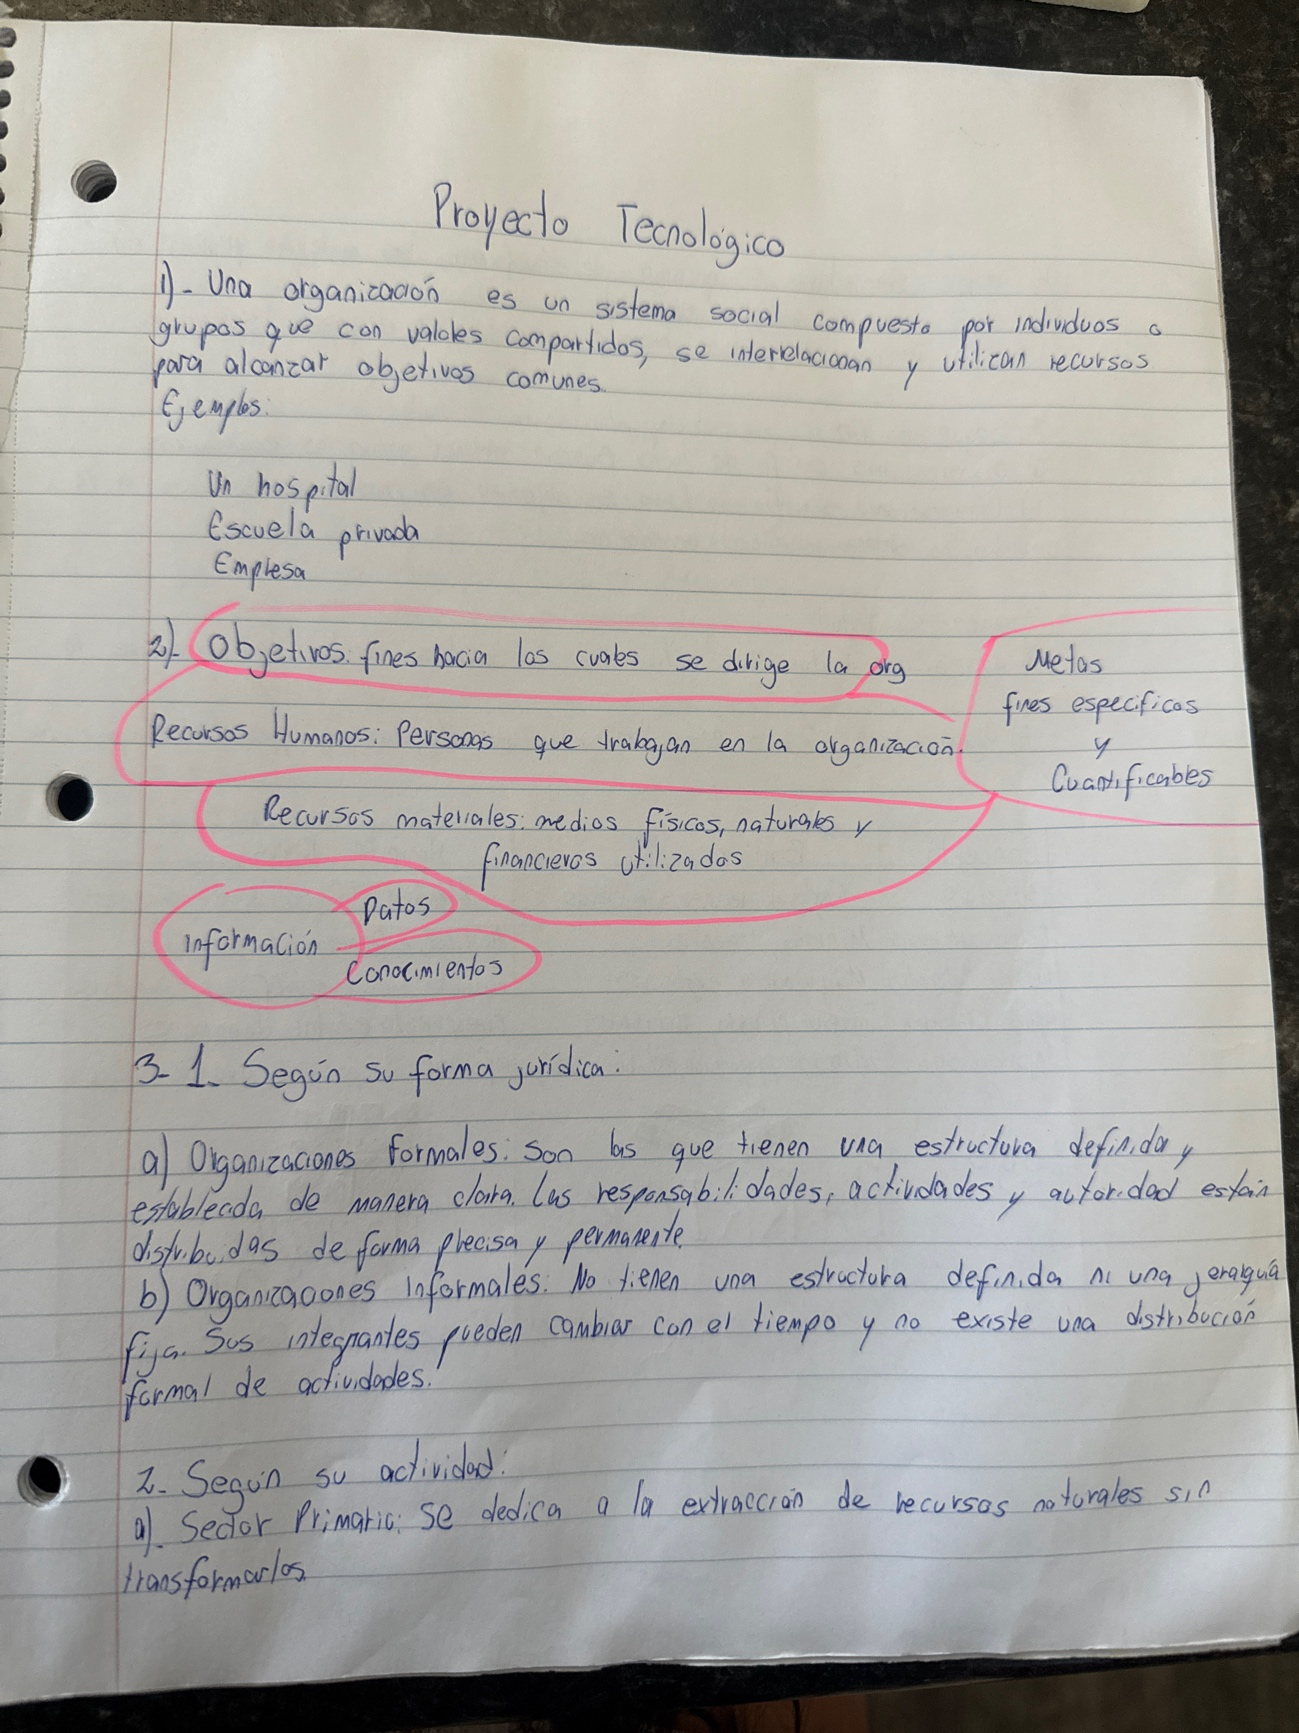 Proyecto Tecnológico
1)- Una organización es un sistema social compuesto por individuos o
grupos que con valores compartidos, se interrelacionan y utilizan recursos
para alcanzar objetivos comunes.
Ejemplos:
Un hospital
Escuela privada
Empresa
2)- Objetivos: fines hacia los cuales se dirige la org
Metas
fines especificos
y
Cuantificables
Recursos Humanos: Personas que trabajan en la organización.
Recursos materiales: medios físicos, naturales y
financieros utilizados
Datos
Información
Conocimientos
3- 1. Según su forma jurídica:
a) Organizaciones formales: Son las que tienen una estructura definida y
establecida de manera clara. Las responsabilidades, actividades y autoridad están
distribuidas de forma precisa y permanente.
b) Organizaciones informales: No tienen una estructura definida ni una jerarquía
fija. Sus integrantes pueden cambiar con el tiempo y no existe una distribución
formal de actividades.
2- Según su actividad:
a). Sector Primario: Se dedica a la extracción de recursos naturales sin
transformarlos.